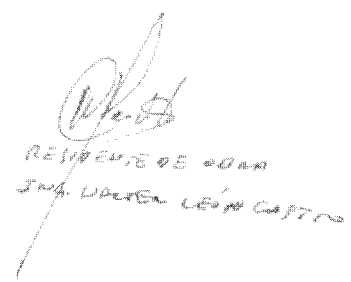 RESIDENTE DE OBRA
ING. WALTER LEÓN CASTRO